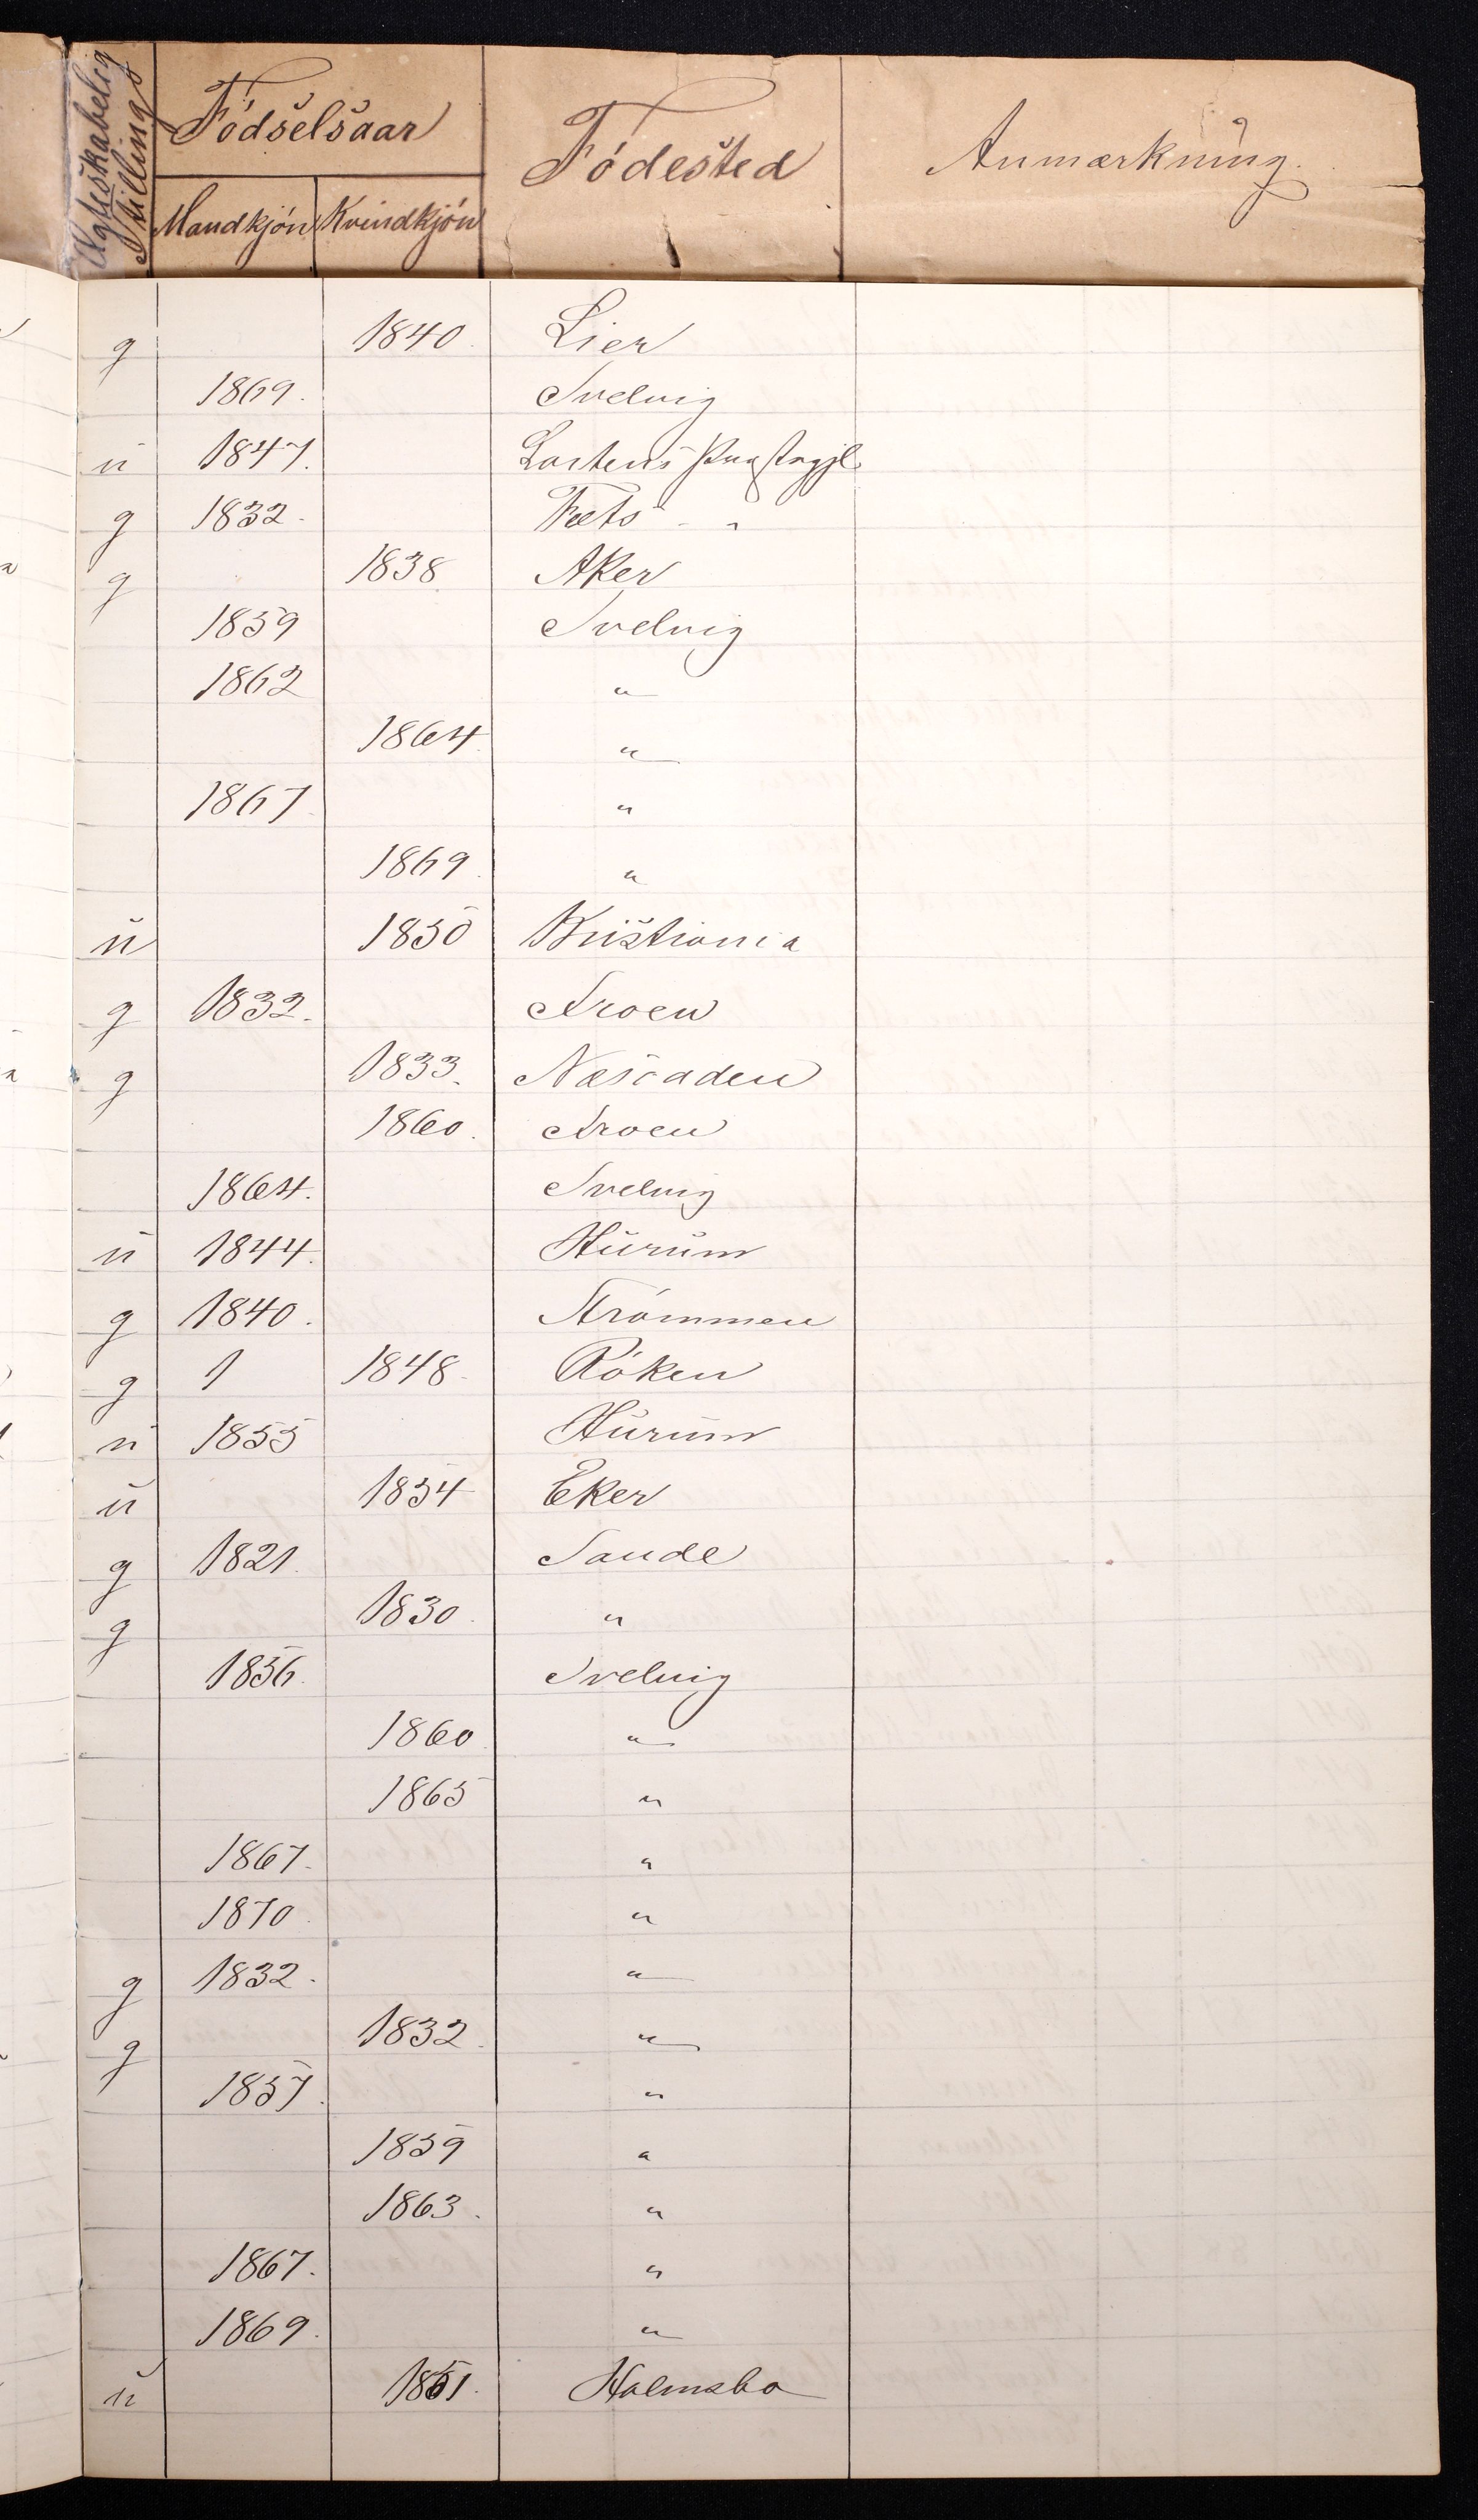 Ægteskabelig Stilling
Fódselsaar
Mandkjón Kvindkjón
Fódested
Anmærkning.
g 1840. Lier
1869. Svelvig
u 1847.
g 1832. Fets - "
g 1838 Aker
1859 Svelvig
1862 "
1864. "
1867. "
1869. "
u 1850 Kristiania
g 1832.
g 1833.
1860.
1864. Svelvig
u 1844. Hurum
g 1840. Strómmen
g 1 1848. Róken
u 1855 Hurum
u 1854 Eker
g 1821. Sande
g 1830. "
1856. Svelvig
1860 "
1865 "
1867. "
1870. "
g 1832. "
g 1832. "
1857. "
1859 "
1863. "
1867. "
1869. "
u Holmsbo